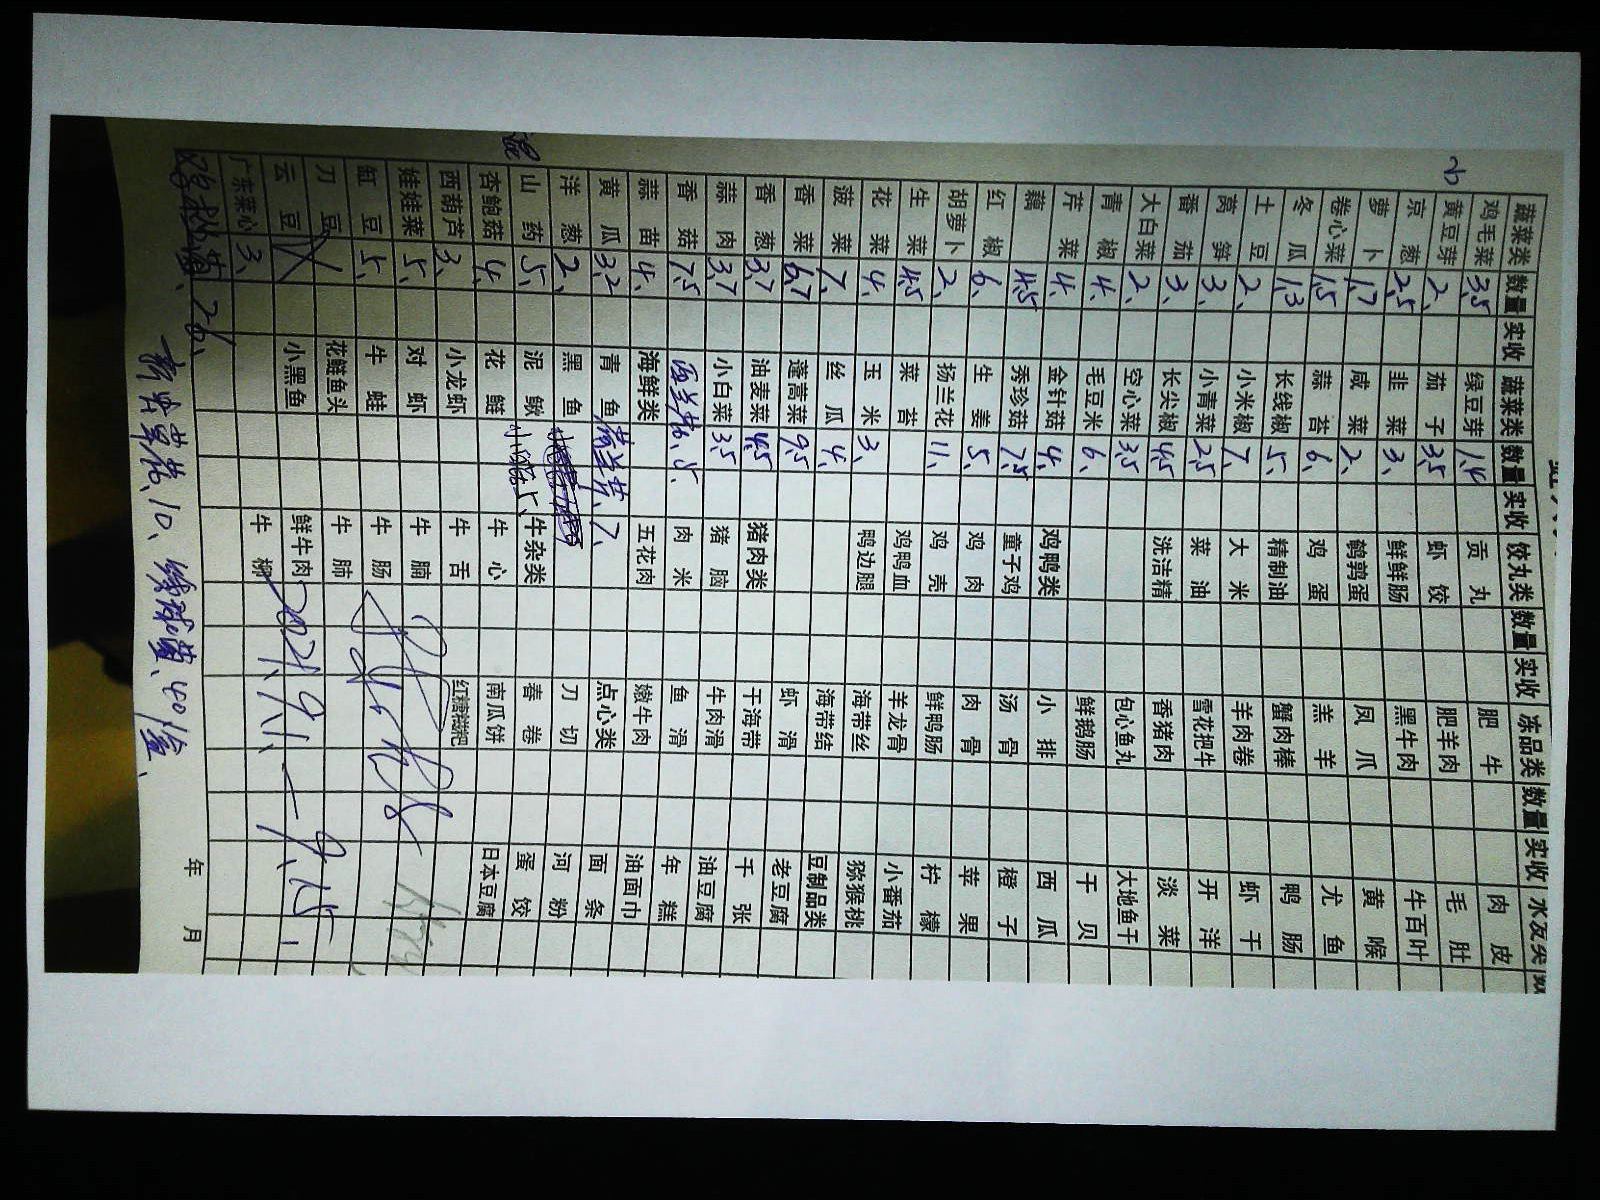 蔬菜类 数量 实收 蔬菜类 数量 实收 饺丸类 数量 实收 冻品类 数量 实收 水发类
鸡毛菜 3.5 绿豆芽 1.4 贡丸 肥牛 肉皮
黄豆芽 2、 茄子 3.5 虾饺 肥羊肉 毛肚
京葱 2.5 韭菜 3、 鲜鲜肠 黑牛肉 牛百叶
萝卜 1.7 咸菜 2、 鹌鹑蛋 凤爪 黄喉
卷心菜 1.5 蒜苔 6、 鸡蛋 羔羊 尤鱼
冬瓜 1.3 长线椒 5、 精制油 蟹肉棒 鸭肠
土豆 2、 小米椒 7、 大米 羊肉卷 虾干
莴笋 3、 小青菜 2.5 菜油 雪花把牛 开洋
番茄 3、 长尖椒 4.5 洗洁精 香猪肉 淡菜
大白菜 2、 空心菜 3.5 包心鱼丸 大地鱼干
青椒 4、 毛豆米 6、 鲜鹅肠 干贝
芹菜 4、 金针菇 4、 鸡鸭类 小排 西瓜
藕 4.5 秀珍菇 7.5 童子鸡 汤骨 橙子
红椒 6、 生姜 5、 鸡肉 肉骨 苹果
胡萝卜 2、 扬兰花 11、 鸡壳 鲜鸭肠 柠檬
生菜 4.5 菜苔 鸡鸭血 羊龙骨 小番茄
花菜 4、 玉米 3、 鸭边腿 海带丝 猕猴桃
菠菜 7、 丝瓜 4、 海带结 豆制品类
香菜 6.7 蓬蒿菜 9.5 虾滑 老豆腐
香葱 3.7 油麦菜 4.5 猪肉类 干海带 千张
蒜肉 3.7 小白菜 3.5 猪脑 牛肉滑 油豆腐
香菇 7.5 肉米 鱼滑 年糕
蒜苗 4、 海鲜类 五花肉 嫩牛肉 油面巾
黄瓜 3.2 青鱼 7、 点心类 面条
洋葱 2、 黑鱼 刀切 河粉
山药 5、 泥鳅 5、 牛杂类 春卷 蛋饺
杏鲍菇 4、 花鲢 牛心 南瓜饼 日本豆腐
西葫芦 3、 小龙虾 牛舌 红糖糍粑
娃娃菜 5、 对虾 牛腩
缸豆 5、 牛蛙 牛肠
刀豆 花鲢鱼头 牛肺
云豆 小黑鱼 鲜牛肉 2021.9.11、— 9.15
广东菜心 3、 牛柳
26、
10、 40/盒、
年 月